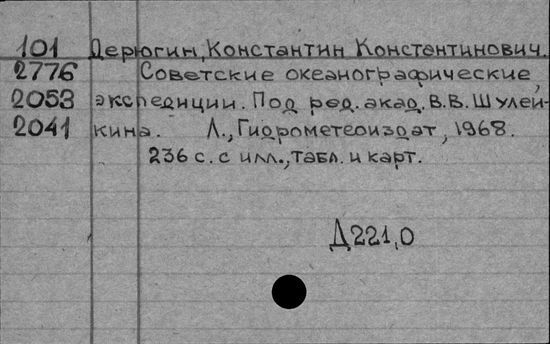 101 Дерюгин, Константин Константинович.
2776 Советские океанографические
2053 экспедиции. Под ред. акад. В.В. Шулей-
2041 кина. Л., Гидрометеоиздат, 1968.
236 с. с илл., табл. и карт.
Д221,0